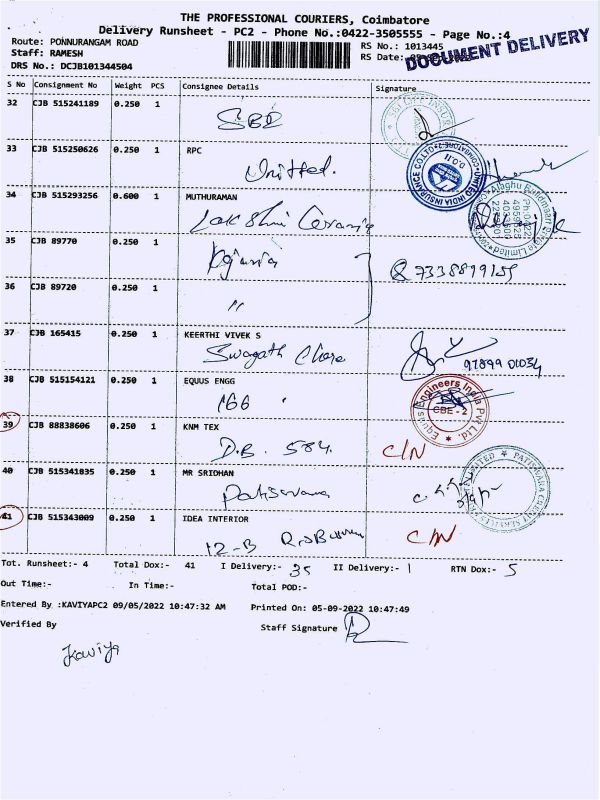 THE PROFESSIONAL COURIERS, Coimbatore
Delivery Runsheet - PC2 - Phone No.:0422-3505555 - Page No.:4
Route: PONNURANGAM ROAD
RS No.: 1013445
Staff: RAMESH
RS Date:
DOCUMENT DELIVERY
DRS No.: DCJB101344504
S No Consignment No Weight PCS Consignee Details Signature
32 CJB 515241189 0.250 1
SBI
33 CJB 515250626 0.250 1 RPC
United.
UNITED INDIA INSURANCE CO.LTD
D.O.II
34 CJB 515293256 0.600 1 MUTHURAMAN
Lakshmi
Private Limited
35 CJB 89770 0.250 1
7338899159
36 CJB 89720 0.250 1
"
37 CJB 165415 0.250 1 KEERTHI VIVEK S
Swagath
97899 01034
38 CJB 515154121 0.250 1 EQUUS ENGG
166
Equus Engineers India Pvt Ltd.
CBE - 2
39 CJB 88838606 0.250 1 KNM TEX
D.B. 584.
C/N
40 CJB 515341835 0.250 1 MR SRIDHAN
41 CJB 515343009 0.250 1 IDEA INTERIOR
12-B
C/N
Tot. Runsheet:- 4 Total Dox:- 41 I Delivery:- 35 II Delivery:- 1 RTN Dox:- 5
Out Time:- In Time:- Total POD:-
Entered By :KAVIYAPC2 09/05/2022 10:47:32 AM Printed On: 05-09-2022 10:47:49
Verified By
Staff Signature
Kaviya